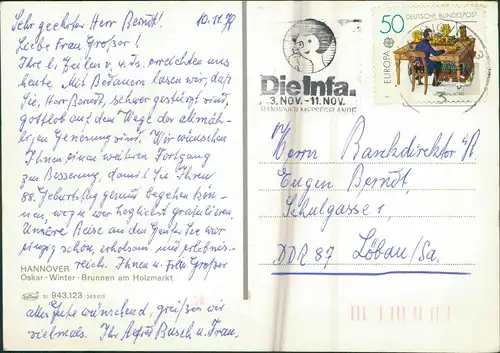 Sehr geehrter Herr Berndt! 10.11.79
Liebe Frau Großer!
Ihre l. Zeilen v. v. ds. erreichten uns
heute. Mit Bedauern lasen wir, daß
Sie, Herr Berndt, schwer gestürzt sind,
gottlob auf dem Wege der allmäh-
ligen Genesung sind. Wir wünschen
Ihnen einen weiteren Fortgang
zur Besserung, damit Sie Ihren
88. Geburtstag gesund begehen kön-
nen, wozu wir herzlichst gratulieren.
Unsere Reise an den Genfer See war
einzig schön, erholsam und erlebnis-
reich. Ihnen u. Frau Großer
HANNOVER
Oskar-Winter-Brunnen am Holzmarkt
51 943.123
alles Gute wünschend, grüßen wir
vielmals. Ihr Alfred Busch u. Frau.
Die Infa.
3. NOV. - 11. NOV.
HANNOVER MESSEGELÄNDE
50 DEUTSCHE BUNDESPOST
EUROPA
3
Herrn Bankdirektor
Eugen Berndt,
Schulgasse 1
DDR 87 Löbau/Sa.